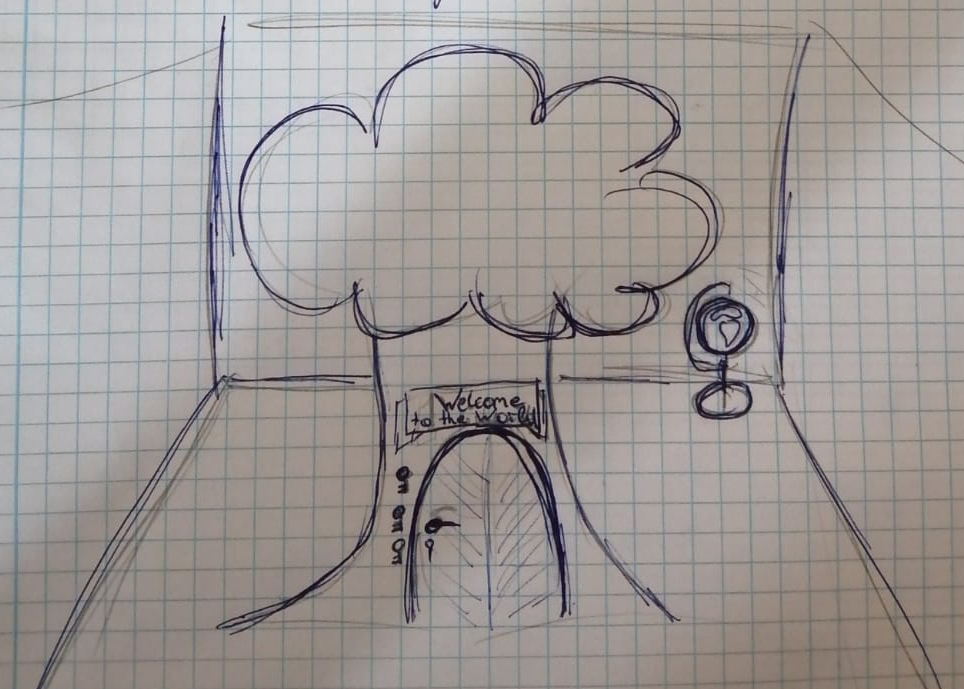 Welcome
to the World